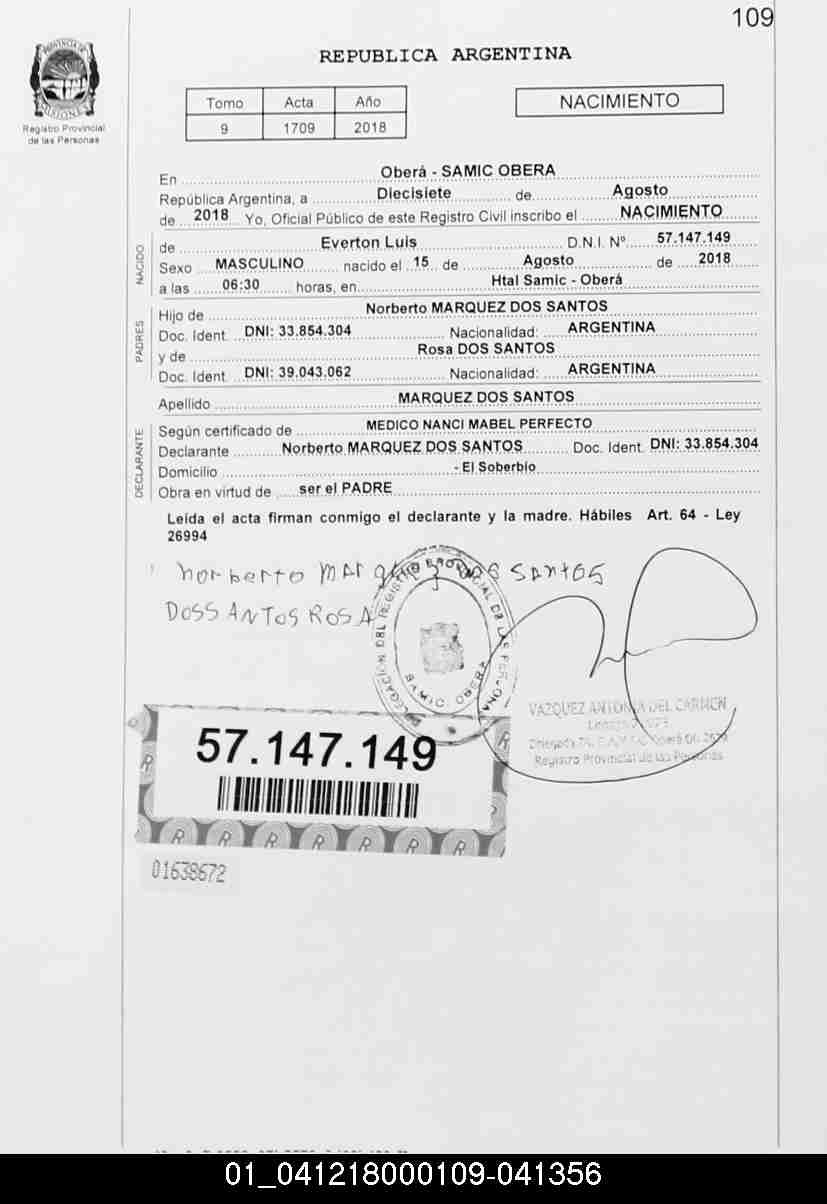 109
REPUBLICA ARGENTINA
PROVINCIA DE MISIONES
Registro Provincial
de las Personas
Tomo Acta Año
9 1709 2018
NACIMIENTO
En Oberá - SAMIC OBERA
República Argentina, a Diecisiete de Agosto
de 2018 Yo, Oficial Público de este Registro Civil inscribo el NACIMIENTO
NACIDO
de Everton Luis D.N.I. Nº 57.147.149
Sexo MASCULINO nacido el 15 de Agosto de 2018
a las 06:30 horas, en Htal Samic - Oberá
PADRES
Hijo de Norberto MARQUEZ DOS SANTOS
Doc. Ident. DNI: 33.854.304 Nacionalidad: ARGENTINA
y de Rosa DOS SANTOS
Doc. Ident. DNI: 39.043.062 Nacionalidad: ARGENTINA
Apellido MARQUEZ DOS SANTOS
DECLARANTE
Según certificado de MEDICO NANCI MABEL PERFECTO
Declarante Norberto MARQUEZ DOS SANTOS Doc. Ident. DNI: 33.854.304
Domicilio - El Soberbio
Obra en virtud de ser el PADRE
Leída el acta firman conmigo el declarante y la madre. Hábiles Art. 64 - Ley
26994
norberto MArquez dos SANtos
DOSSANTOS ROSA
DELEGACION DEL REGISTRO PROVINCIAL DE LAS PERSONAS
SAMIC OBERA
VAZQUEZ ANTONIA DEL CARMEN
Registro Provincial de las Personas
57.147.149
R R R R R R R R R
01638672
01_041218000109-041356